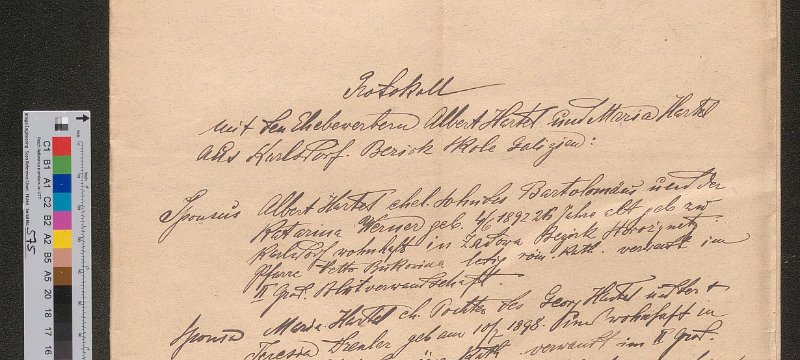 Protokoll
mit den Ehebewerbern Albert Hartel und Maria Hartel
aus Karlsdorf. Bezirk Skole Galizien:
Sponsus Albert Hartel ehel. Sohn des Bartolomäus und der
Katarina Werner geb. 4/6 1892 26 Jahre alt geb. zu
Karlsdorf wohnhaft in Zadowa Bezirk
Pfarre Bukowina ledig röm. kath. verwandt im
II Grad. Blutverwandschaft.
Sponsa Maria Hartel eh. Tochter des Georg Hartel und der +
Teressa geb am 10/ 1898. wohnhaft in
kath. verwandt im II Grad.
C1
B1
A1
C2
B2
A2
B5
A5
20
18
17
16
575